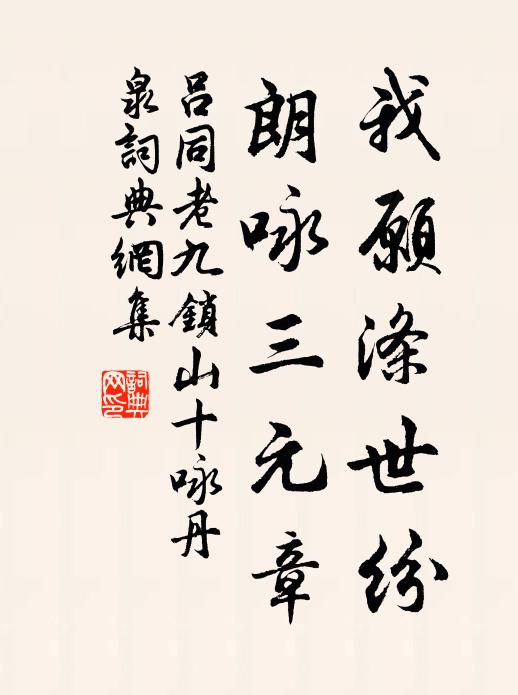 我願滌世紛
朗咏三元章
吕同老九鎖山十咏丹
泉詞典網集
詞典网印